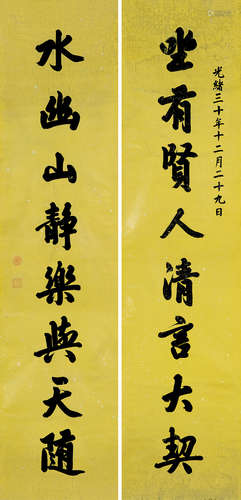 光緒三十年十二月二十九日
坐有賢人清言大契
水幽山靜樂與天隨